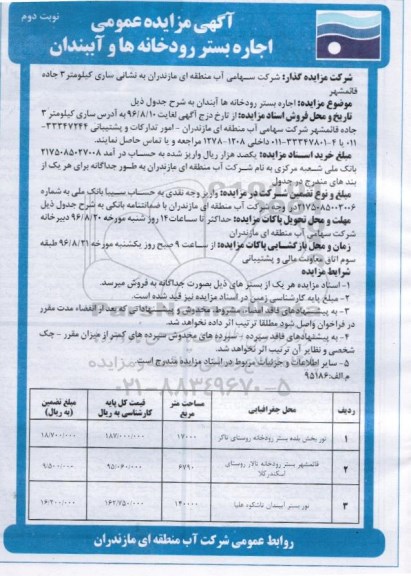 نوبت دوم
آگهی مزایده عمومی
اجاره بستر رودخانه ها و آببندان
شرکت مزایده گذار: شرکت سهامی آب منطقه ای مازندران به نشانی ساری کیلومتر ۳ جاده
قائمشهر
موضوع مزایده: اجاره بستر رودخانه ها آبندان به شرح جدول ذیل
تاریخ و محل فروش اسناد مزایده: از تارخ درج آگهی لغایت ۹۶/۸/۱۰ به آدرس ساری کیلومتر ۳
جاده قائمشهر شرکت سهامی آب منطقه ای مازندران - امور تدارکات و پشتیبانی ۳۳۳۴۷۲۴۴-
۰۱۱ یا ۴-۳۳۳۴۷۸۰۱-۰۱۱ داخلی ۱۲۰۸-۱۲۷۸ مراجعه و یا تماس حاصل نمایند.
مبلغ خرید اسناد مزایده: یکصد هزار ریال واریز شده به حساب در آمد ۲۱۷۵۰۸۵۰۲۷۰۰۸
بانک ملی شعبه مرکزی به نام شرکت آب منطقه ای مازندران به طور جداگانه برای هر یک از
بند های مندرج در جدول
مبلغ و نوع تضمین شرکت در مزایده: واریز وجه نقدی به حساب سیبا بانک ملی به شماره
۲۱۷۵۰۸۵۰۰۲۰۰۶ در وجه شرکت آب منطقه ای مازندران یا ضمانتنامه بانکی به شرح جدول ذیل
مهلت و محل تحویل پاکات مزایده: حداکثر تا ساعات ۱۴ روز شنبه مورخه ۹۶/۸/۲۰ دبیرخانه
شرکت سهامی آب منطقه ای مازندران
زمان و محل بازگشایی پاکات مزایده: از ساعت ۹ صبح روز یکشنبه مورخه ۹۶/۸/۲۱ طبقه
سوم اتاق معاونت مالی و پشتیبانی
شرایط مزایده
۱- اسناد مزایده هر یک از بستر های ذیل بصورت جداگانه به فروش میرسد.
۲- مبلغ پایه کارشناسی زمین در اسناد مزایده نیز قید شده است.
۳- به پیشنهادهای فاقد امضاء مشروط، مخدوش و پیشنهاداتی که بعد از انقضاء مدت مقرر
در فراخوان واصل شود مطلقا ترتیب اثر داده نخواهد شد.
۴- به پیشنهادهای فاقد سپرده - سپرده های مخدوش سپرده های کمتر از میزان مقرر - چک
شخصی و نظایر آن ترتیب اثر نخواهد شد.
۵- سایر اطلاعات و جزئیات مربوط در اسناد مزایده مندرج است.
م الف: ۹۵۱۸۶
۰۲۱-۸۸۳۴۹۶۷۰-۵
ردیف محل جغرافیایی مساحت متر مربع قیمت کل پایه کارشناسی به ریال مبلغ تضمین (به ریال)
۱ نور بخش بلده بستر رودخانه روستای تاکر ۱۷۰۰۰ ۱۸۷/۰۰۰/۰۰۰ ۱۸/۷۰۰/۰۰۰
۲ قائمشهر بستر رودخانه تالار روستای اسکندرکلا ۶۷۹۰ ۹۵/۰۶۰/۰۰۰ ۹/۵۰۰/۰۰۰
۳ نور بستر آببندان تاشکوه علیا ۱۴۰۰۰۰ ۱۶۲/۷۵۰/۰۰۰ ۱۶/۲۰۰/۰۰۰
روابط عمومی شرکت آب منطقه ای مازندران